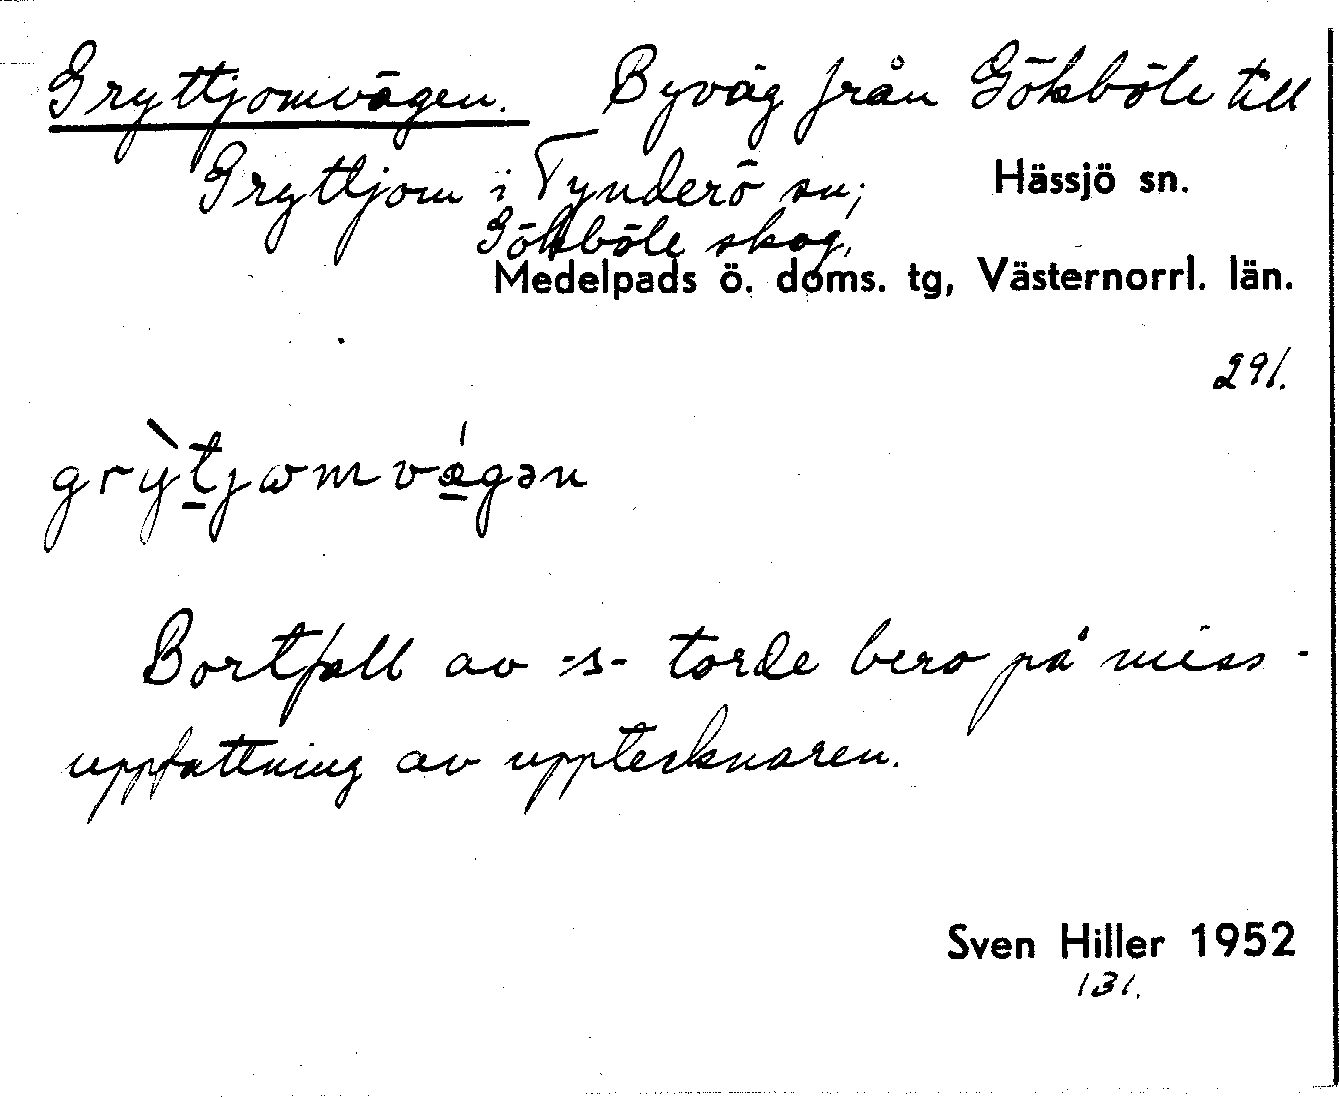 Gryttjomvägen. Byväg från Gökböle till
Gryttjom i Tynderö sn; Hässjö sn.
Gökböle skog,
Medelpads ö. doms. tg, Västernorrl. län.
291.
grỳt̲jɷmvǽ̲gən
Bortfall av -s- torde bero på miss-
uppfattning av upptecknaren.
Sven Hiller 1952
131.